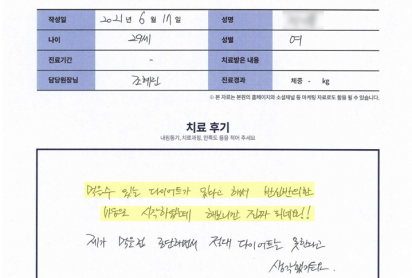 작성일 2021년 6월 17일 성명
나이 29세 성별 여
진료기간 - 치료받은 내용
담당원장님 조혜린 진료경과 체중 - kg
※ 본 자료는 본원의 홈페이지와 소셜채널 등 마케팅 자료로도 활용 될 수 있습니다.
치료 후기
내원동기, 치료과정, 만족도 등을 적어 주세요
먹을수 있는 다이어트가 있다고 해서 반신반의한
마음으로 시작하였는데 해보니깐 진짜 되네요!!
제가 먹은걸 조절하면서 절대 다이어트는 못한다고
생각했거든요.